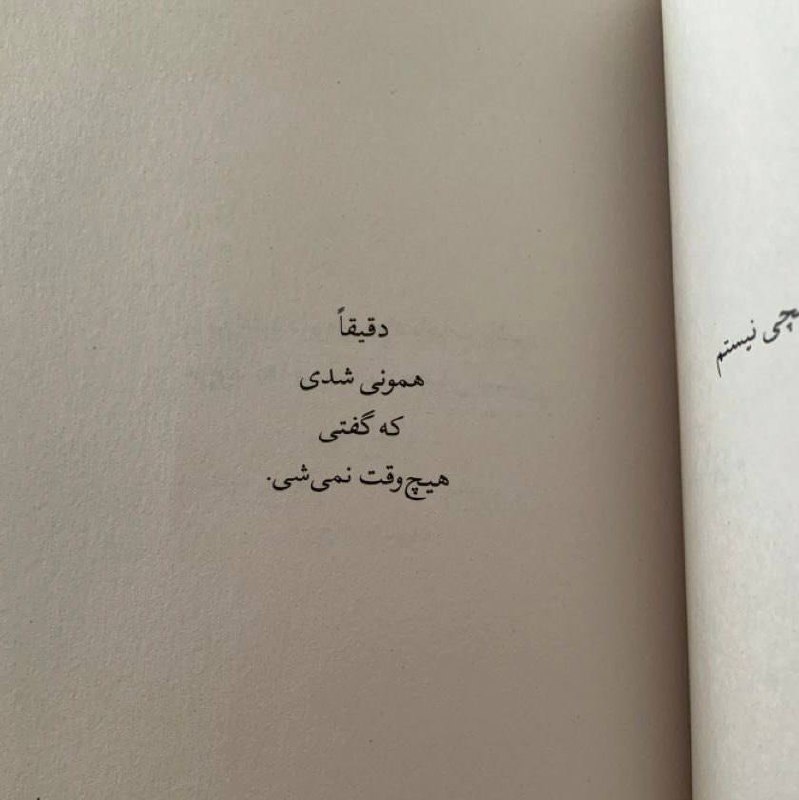 دقیقاً
همونی شدی
که گفتی
هیچ‌وقت نمی‌شی.
نیستم